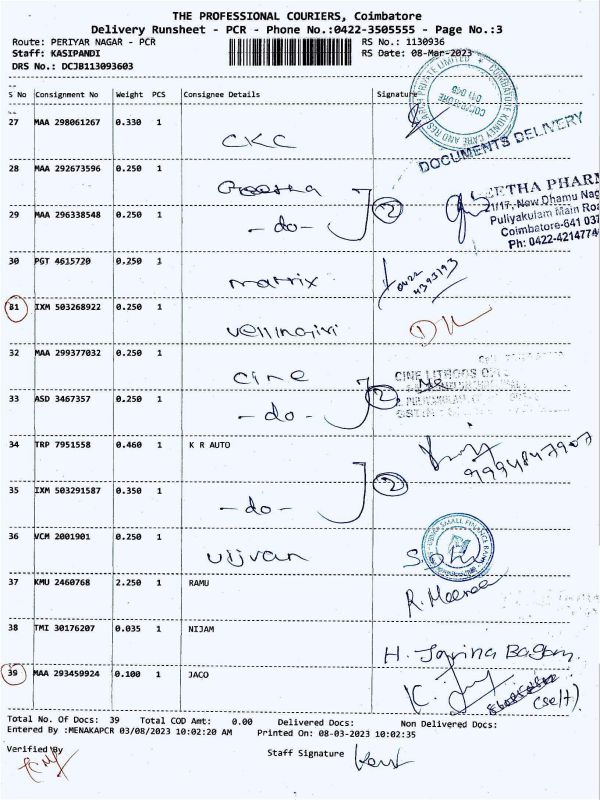 THE PROFESSIONAL COURIERS, Coimbatore
Delivery Runsheet - PCR - Phone No.:0422-3505555 - Page No.:3
Route: PERIYAR NAGAR - PCR RS No.: 1130936
Staff: KASIPANDI RS Date: 08-Mar-2023
DRS No.: DCJB113093603
S No Consignment No Weight PCS Consignee Details Signature
27 MAA 298061267 0.330 1 CKC
COIMBATORE KIDNEY CARE AND RESEARCH PRIVATE LIMITED
COIMBATORE
641 045
DOCUMENTS DELIVERY
28 MAA 292673596 0.250 1 Geetha 2
29 MAA 296338548 0.250 1 -do-
GEETHA PHARM
21/17, New Dhamu Nag
Puliyakulam Main Roa
Coimbatore-641 037
Ph: 0422-4214774
30 PGT 4615720 0.250 1 matrix 0422
4393193
31 IXM 503268922 0.250 1 vellingiri
32 MAA 299377032 0.250 1 cine 2
33 ASD 3467357 0.250 1 -do-
34 TRP 7951558 0.460 1 K R AUTO 2
9994847907
35 IXM 503291587 0.350 1 -do-
36 VCM 2001901 0.250 1 Ujjvan
SMALL FINANCE BANK
37 KMU 2460768 2.250 1 RAMU R. Meena
38 TMI 30176207 0.035 1 NIJAM H. Jarina Bagam.
39 MAA 293459924 0.100 1 JACO
(self)
Total No. Of Docs: 39 Total COD Amt: 0.00 Delivered Docs: Non Delivered Docs:
Entered By :MENAKAPCR 03/08/2023 10:02:20 AM Printed On: 08-03-2023 10:02:35
Verified By Staff Signature